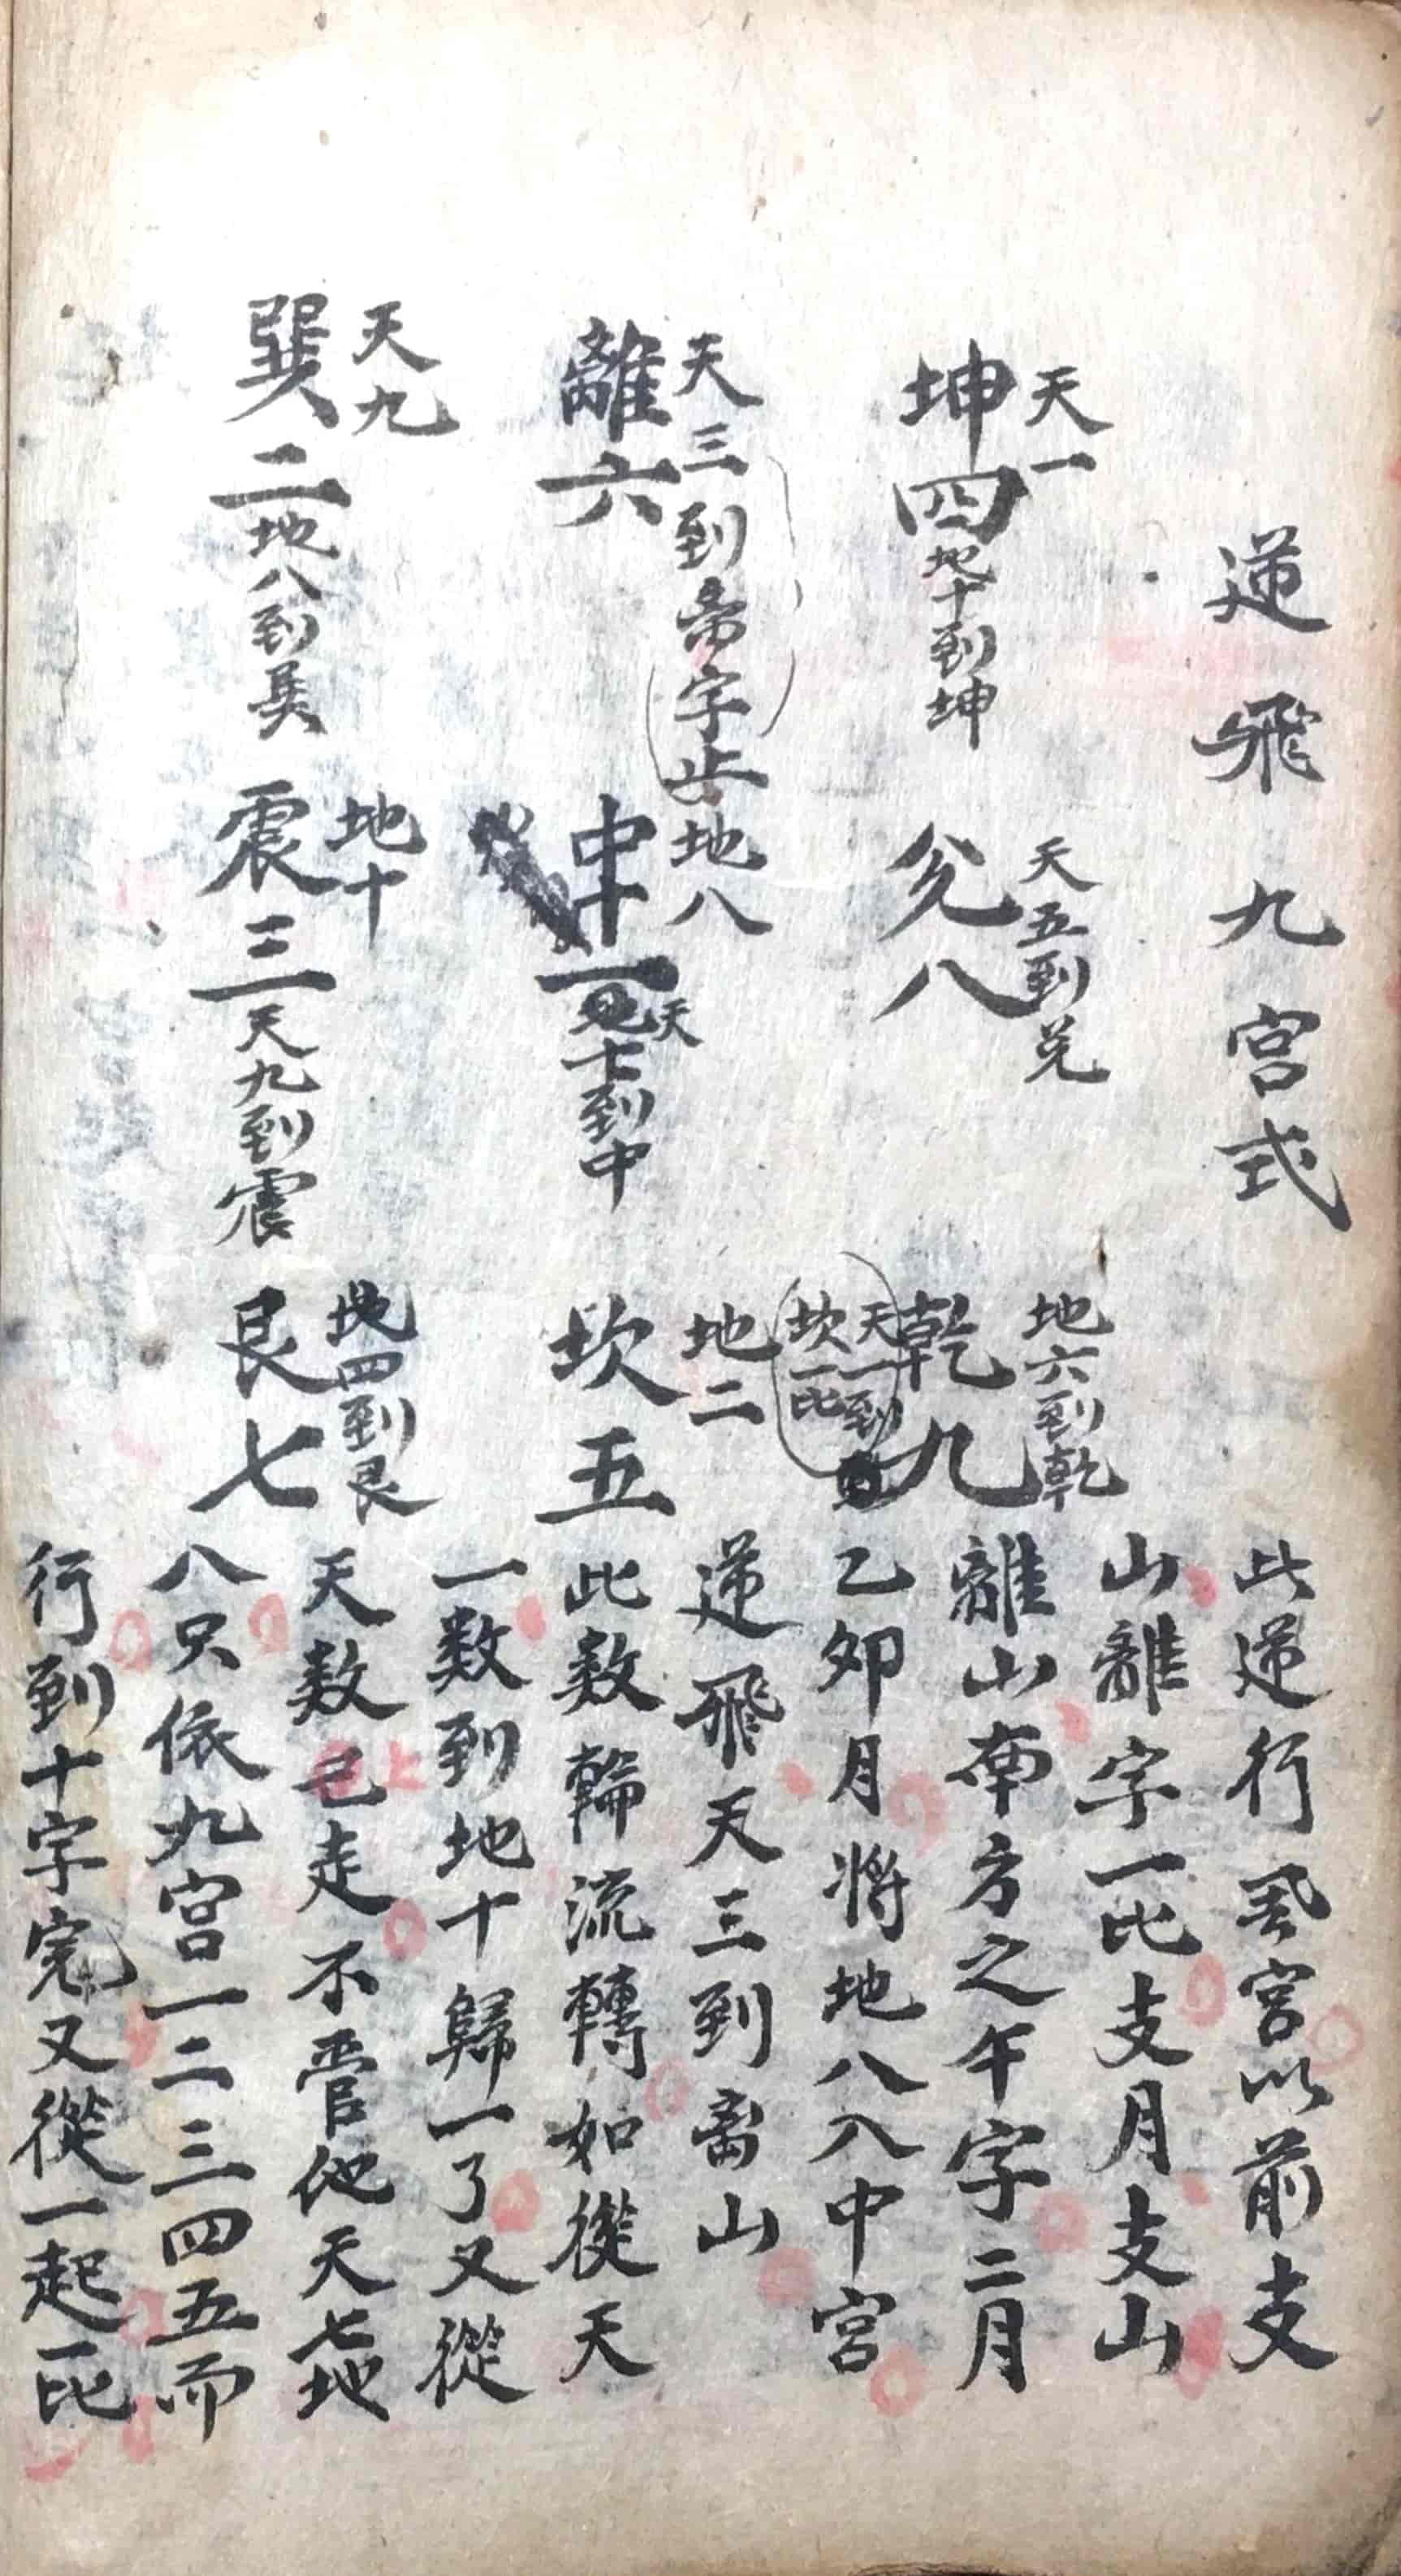 逆飛九宮式
天一
坤四地十到坤
天五到兌
兌八
地六到乾
乾九
天一到
坎一比
天三到帝字步地八
離六
中一
天
七到中
地二
坎五
天九
巽二地八到巽
地十
震三天九到震
地四到艮
艮七
此逆行風宮以前支
山離字一比支月支山
離山南方之午字二月
乙夘月將地八入中宮
逆飛天三到离山
此数輪流轉如從天
一数到地十歸一了又從
天数已走不管他天七地
八只依九宮一二三四五而
行到十字完又從一起一比